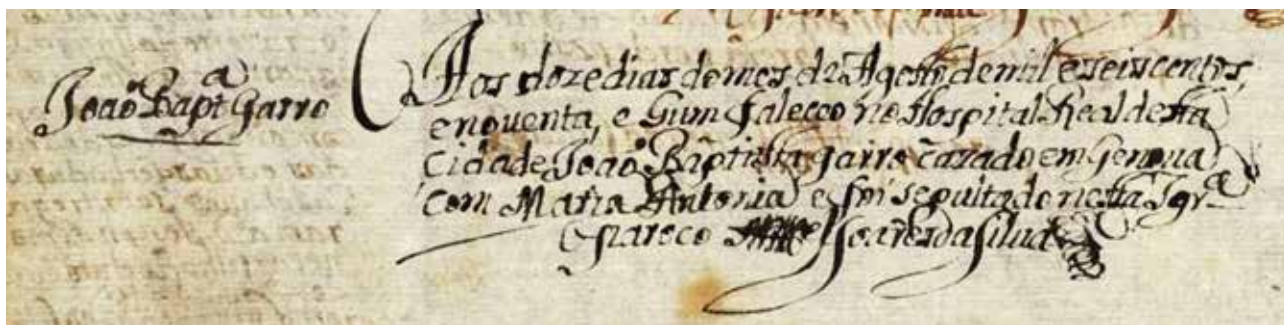 João Bapt.ª Garro
Aos doze dias do mes de Agosto de mil e seis centos,
e noventa, e hum faleceo no Hospital Real desta
Cidade João Baptista Garro cazado em Genoua
com Maria Antonia e foi sepultado nesta Igr.ª
O Paroco Soares da Silva